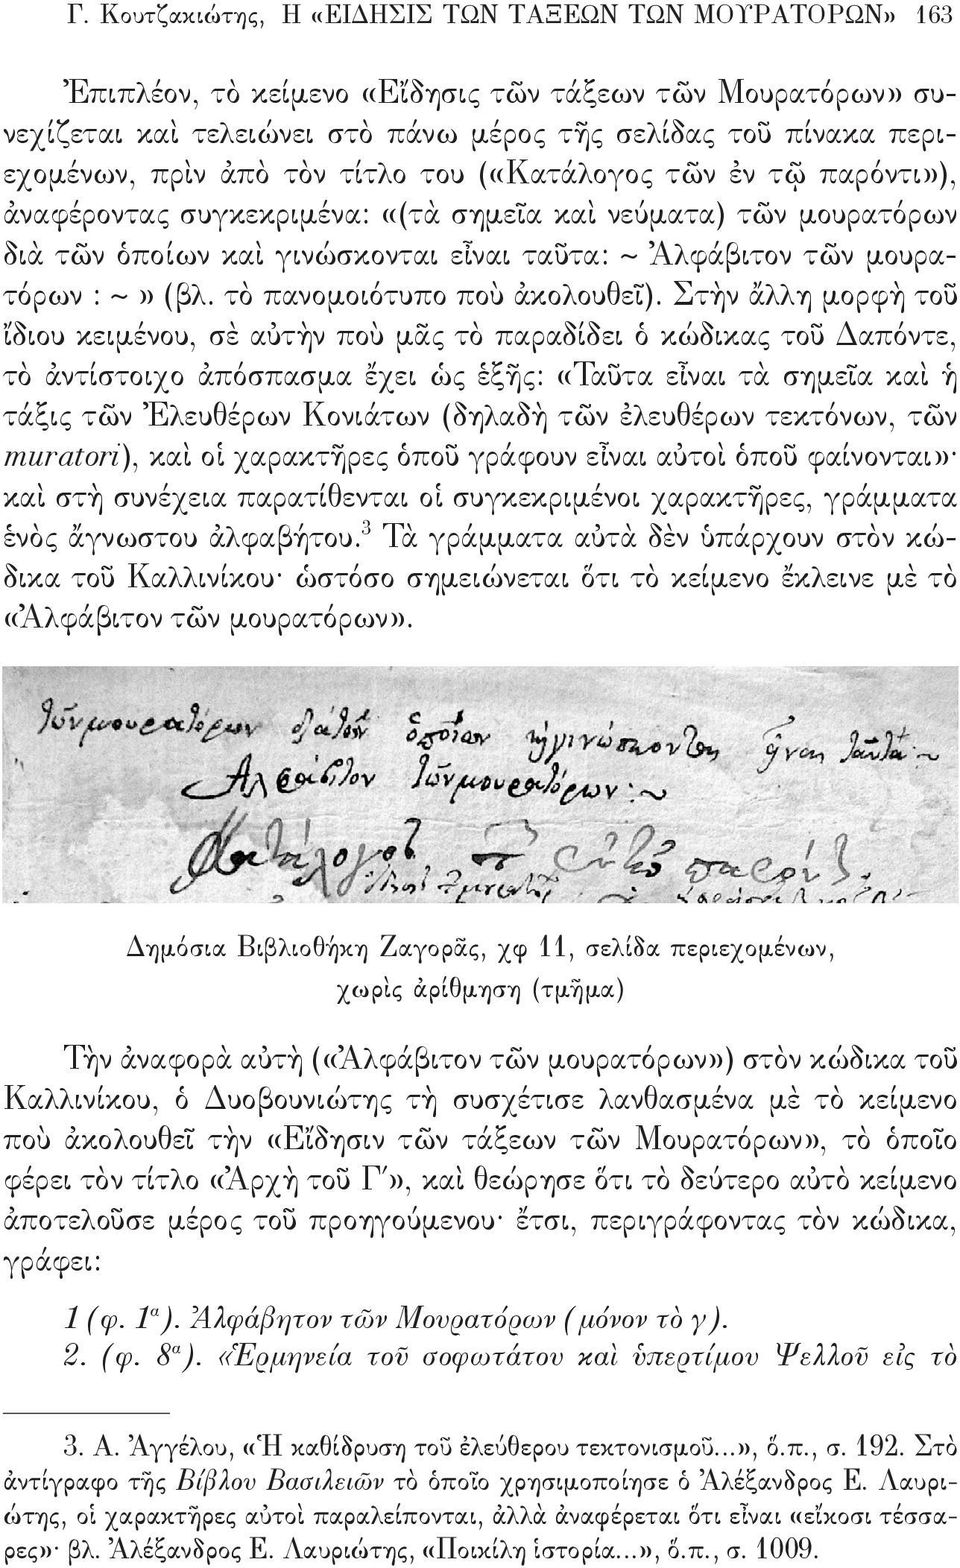 Γ. Κουτζακιώτης, Η «ΕΙΔΗΣΙΣ ΤΩΝ ΤΑΞΕΩΝ ΤΩΝ ΜΟΥΡΑΤΟΡΩΝ» 163
Ἐπιπλέον, τὸ κείμενο «Εἴδησις τῶν τάξεων τῶν Μουρατόρων» συ-
νεχίζεται καὶ τελειώνει στὸ πάνω μέρος τῆς σελίδας τοῦ πίνακα περι-
εχομένων, πρὶν ἀπὸ τὸν τίτλο του («Κατάλογος τῶν ἐν τῷ παρόντι»),
ἀναφέροντας συγκεκριμένα: «(τὰ σημεῖα καὶ νεύματα) τῶν μουρατόρων
διὰ τῶν ὁποίων καὶ γινώσκονται εἶναι ταῦτα: ~ Ἀλφάβιτον τῶν μουρα-
τόρων : ~ » (βλ. τὸ πανομοιότυπο ποὺ ἀκολουθεῖ). Στὴν ἄλλη μορφὴ τοῦ
ἴδιου κειμένου, σὲ αὐτὴν ποὺ μᾶς τὸ παραδίδει ὁ κώδικας τοῦ Δαπόντε,
τὸ ἀντίστοιχο ἀπόσπασμα ἔχει ὡς ἑξῆς: «Ταῦτα εἶναι τὰ σημεῖα καὶ ἡ
τάξις τῶν Ἐλευθέρων Κονιάτων (δηλαδὴ τῶν ἐλευθέρων τεκτόνων, τῶν
muratori), καὶ οἱ χαρακτῆρες ὁποῦ γράφουν εἶναι αὐτοὶ ὁποῦ φαίνονται»·
καὶ στὴ συνέχεια παρατίθενται οἱ συγκεκριμένοι χαρακτῆρες, γράμματα
ἑνὸς ἄγνωστου ἀλφαβήτου.³ Τὰ γράμματα αὐτὰ δὲν ὑπάρχουν στὸν κώ-
δικα τοῦ Καλλινίκου· ὡστόσο σημειώνεται ὅτι τὸ κείμενο ἔκλεινε μὲ τὸ
«Ἀλφάβιτον τῶν μουρατόρων».
τῶν μουρατόρων διὰ τῶν ὁποίων κὴ γινώσκοντες ἦνε ταῦτα: ~
Ἀλφάβιτον τῶν μουρατόρων: ~
Δημόσια Βιβλιοθήκη Ζαγορᾶς, χφ 11, σελίδα περιεχομένων,
χωρὶς ἀρίθμηση (τμῆμα)
Τὴν ἀναφορὰ αὐτὴ («Ἀλφάβιτον τῶν μουρατόρων») στὸν κώδικα τοῦ
Καλλινίκου, ὁ Δυοβουνιώτης τὴ συσχέτισε λανθασμένα μὲ τὸ κείμενο
ποὺ ἀκολουθεῖ τὴν «Εἴδησιν τῶν τάξεων τῶν Μουρατόρων», τὸ ὁποῖο
φέρει τὸν τίτλο «Ἀρχὴ τοῦ Γʹ», καὶ θεώρησε ὅτι τὸ δεύτερο αὐτὸ κείμενο
ἀποτελοῦσε μέρος τοῦ προηγούμενου· ἔτσι, περιγράφοντας τὸν κώδικα,
γράφει:
1 (φ. 1ᵅ). Ἀλφάβητον τῶν Μουρατόρων (μόνον τὸ γ).
2. (φ. 8ᵅ). «Ἑρμηνεία τοῦ σοφωτάτου καὶ ὑπερτίμου Ψελλοῦ εἰς τὸ
3. Α. Ἀγγέλου, «Ἡ καθίδρυση τοῦ ἐλεύθερου τεκτονισμοῦ...», ὅ.π., σ. 192. Στὸ
ἀντίγραφο τῆς Βίβλου Βασιλειῶν τὸ ὁποῖο χρησιμοποίησε ὁ Ἀλέξανδρος Ε. Λαυρι-
ώτης, οἱ χαρακτῆρες αὐτοὶ παραλείπονται, ἀλλὰ ἀναφέρεται ὅτι εἶναι «εἴκοσι τέσσα-
ρες»· βλ. Ἀλέξανδρος Ε. Λαυριώτης, «Ποικίλη ἱστορία...», ὅ.π., σ. 1009.